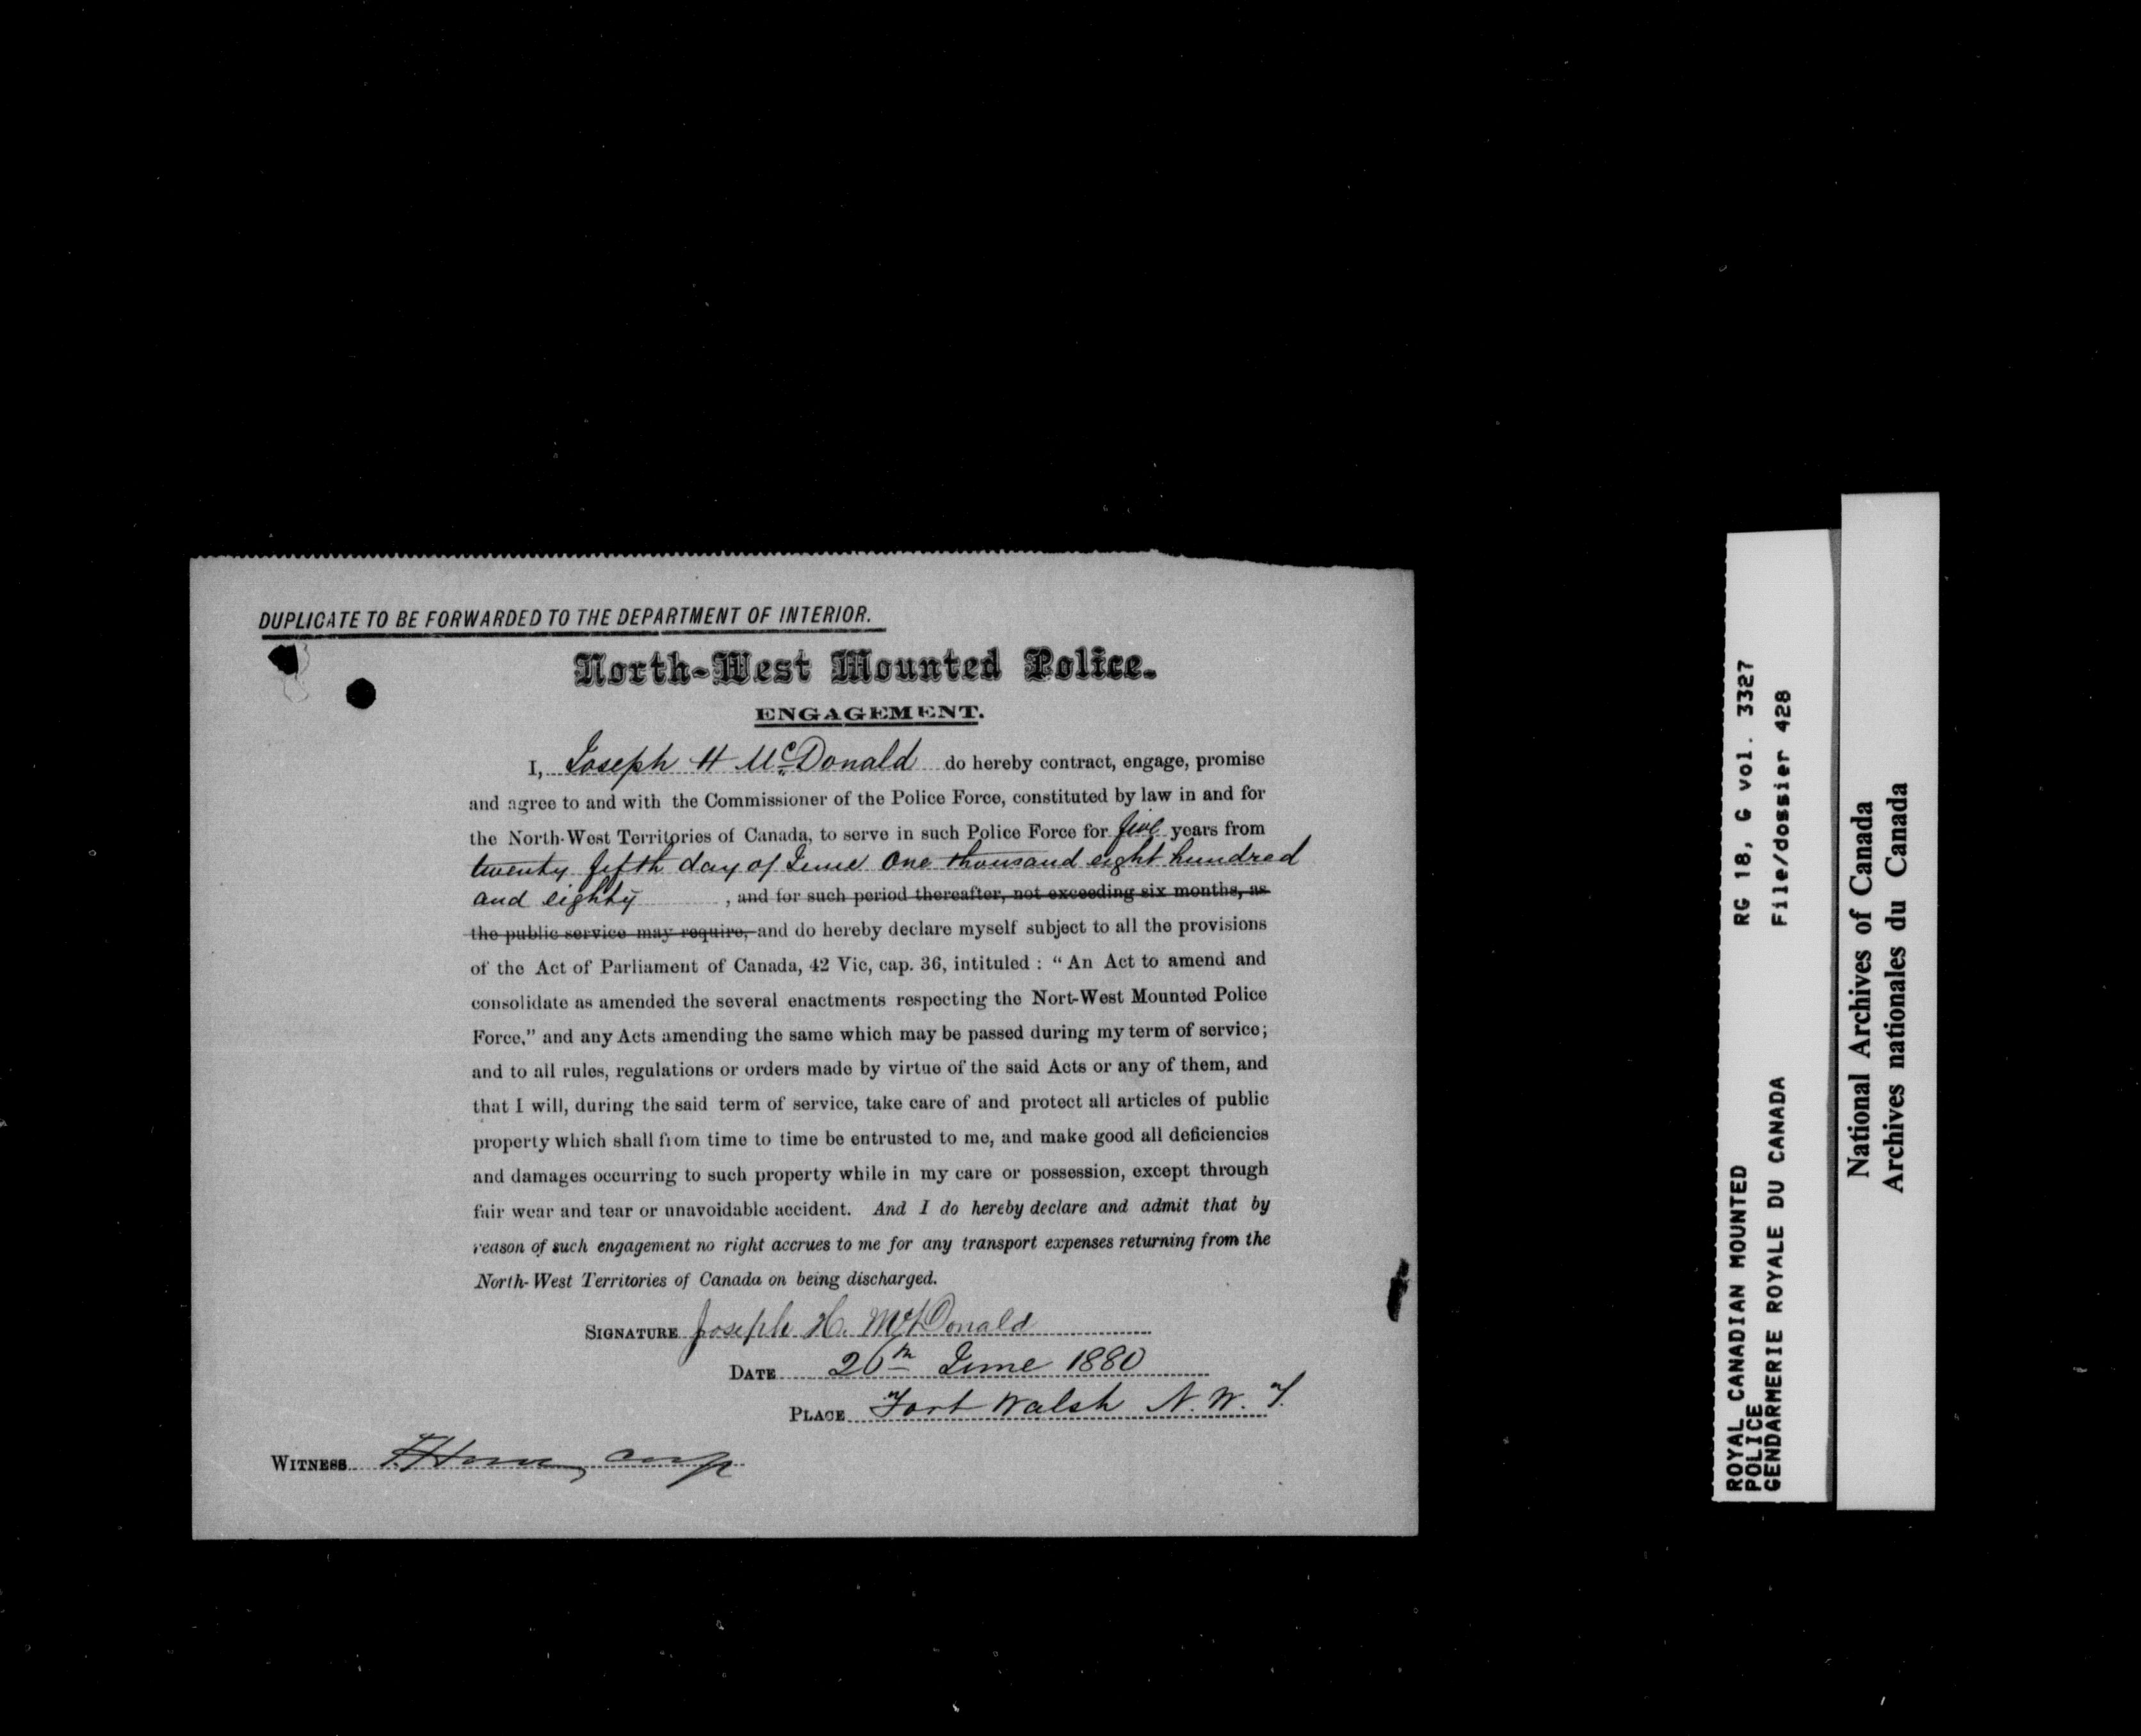 DUPLICATE TO BE FORWARDED TO THE DEPARTMENT OF INTERIOR.
North-West Mounted Police.
ENGAGEMENT.
I, Joseph H McDonald do hereby contract, engage, promise
and agree to and with the Commissioner of the Police Force, constituted by law in and for
the North-West Territories of Canada, to serve in such Police Force for five years from
twenty fifth day of June One thousand eight hundred
and eighty , and for such period thereafter, not exceeding six months, as
the public service may require, and do hereby declare myself subject to all the provisions
of the Act of Parliament of Canada, 42 Vic, cap. 36, intituled : “ An Act to amend and
consolidate as amended the several enactments respecting the Nort-West Mounted Police
Force,” and any Acts amending the same which may be passed during my term of service;
and to all rules, regulations or orders made by virtue of the said Acts or any of them, and
that I will, during the said term of service, take care of and protect all articles of public
property which shall from time to time be entrusted to me, and make good all deficiencies
and damages occurring to such property while in my care or possession, except through
fair wear and tear or unavoidable accident. And I do hereby declare and admit that by
reason of such engagement no right accrues to me for any transport expenses returning from the
North-West Territories of Canada on being discharged.
SIGNATURE Joseph H. McDonald
DATE 26th June 1880
PLACE Fort Walsh N.W.T.
WITNESS
ROYAL CANADIAN MOUNTED RG 18, G vol. 3327
POLICE
GENDARMERIE ROYALE DU CANADA File/dossier 428
National Archives of Canada
Archives nationales du Canada